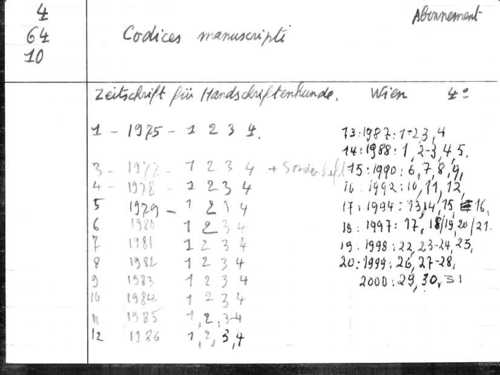 4
64
10
Codices manuscripti
Abonnement
Zeitschrift für Handschriftenkunde. Wien 4°
1 - 1975 - 1 2 3 4.
3 - 1977 - 1 2 3 4 + Sonderheft
4 - 1978 - 1 2 3 4
5 1979 - 1 2 3 4
6 1980 1 2 3 4
7 1981 1 2 3 4
8 1982 1 2 3 4
9 1983 1 2 3 4
10 1984 1 2 3 4
11 1985 1, 2, 3-4
12 1986 1, 2, 3, 4
13:1987:1-2 3, 4
14:1988:1, 2-3, 4, 5.
15:1990:6, 7, 8, 9,
16.1992:10, 11, 12,
17:1994:13, 14, 15, 16,
18:1997:17, 18/19, 20/21.
19.1998:22, 23-24, 25,
20:1999:26, 27-28,
2000:29, 30, 31